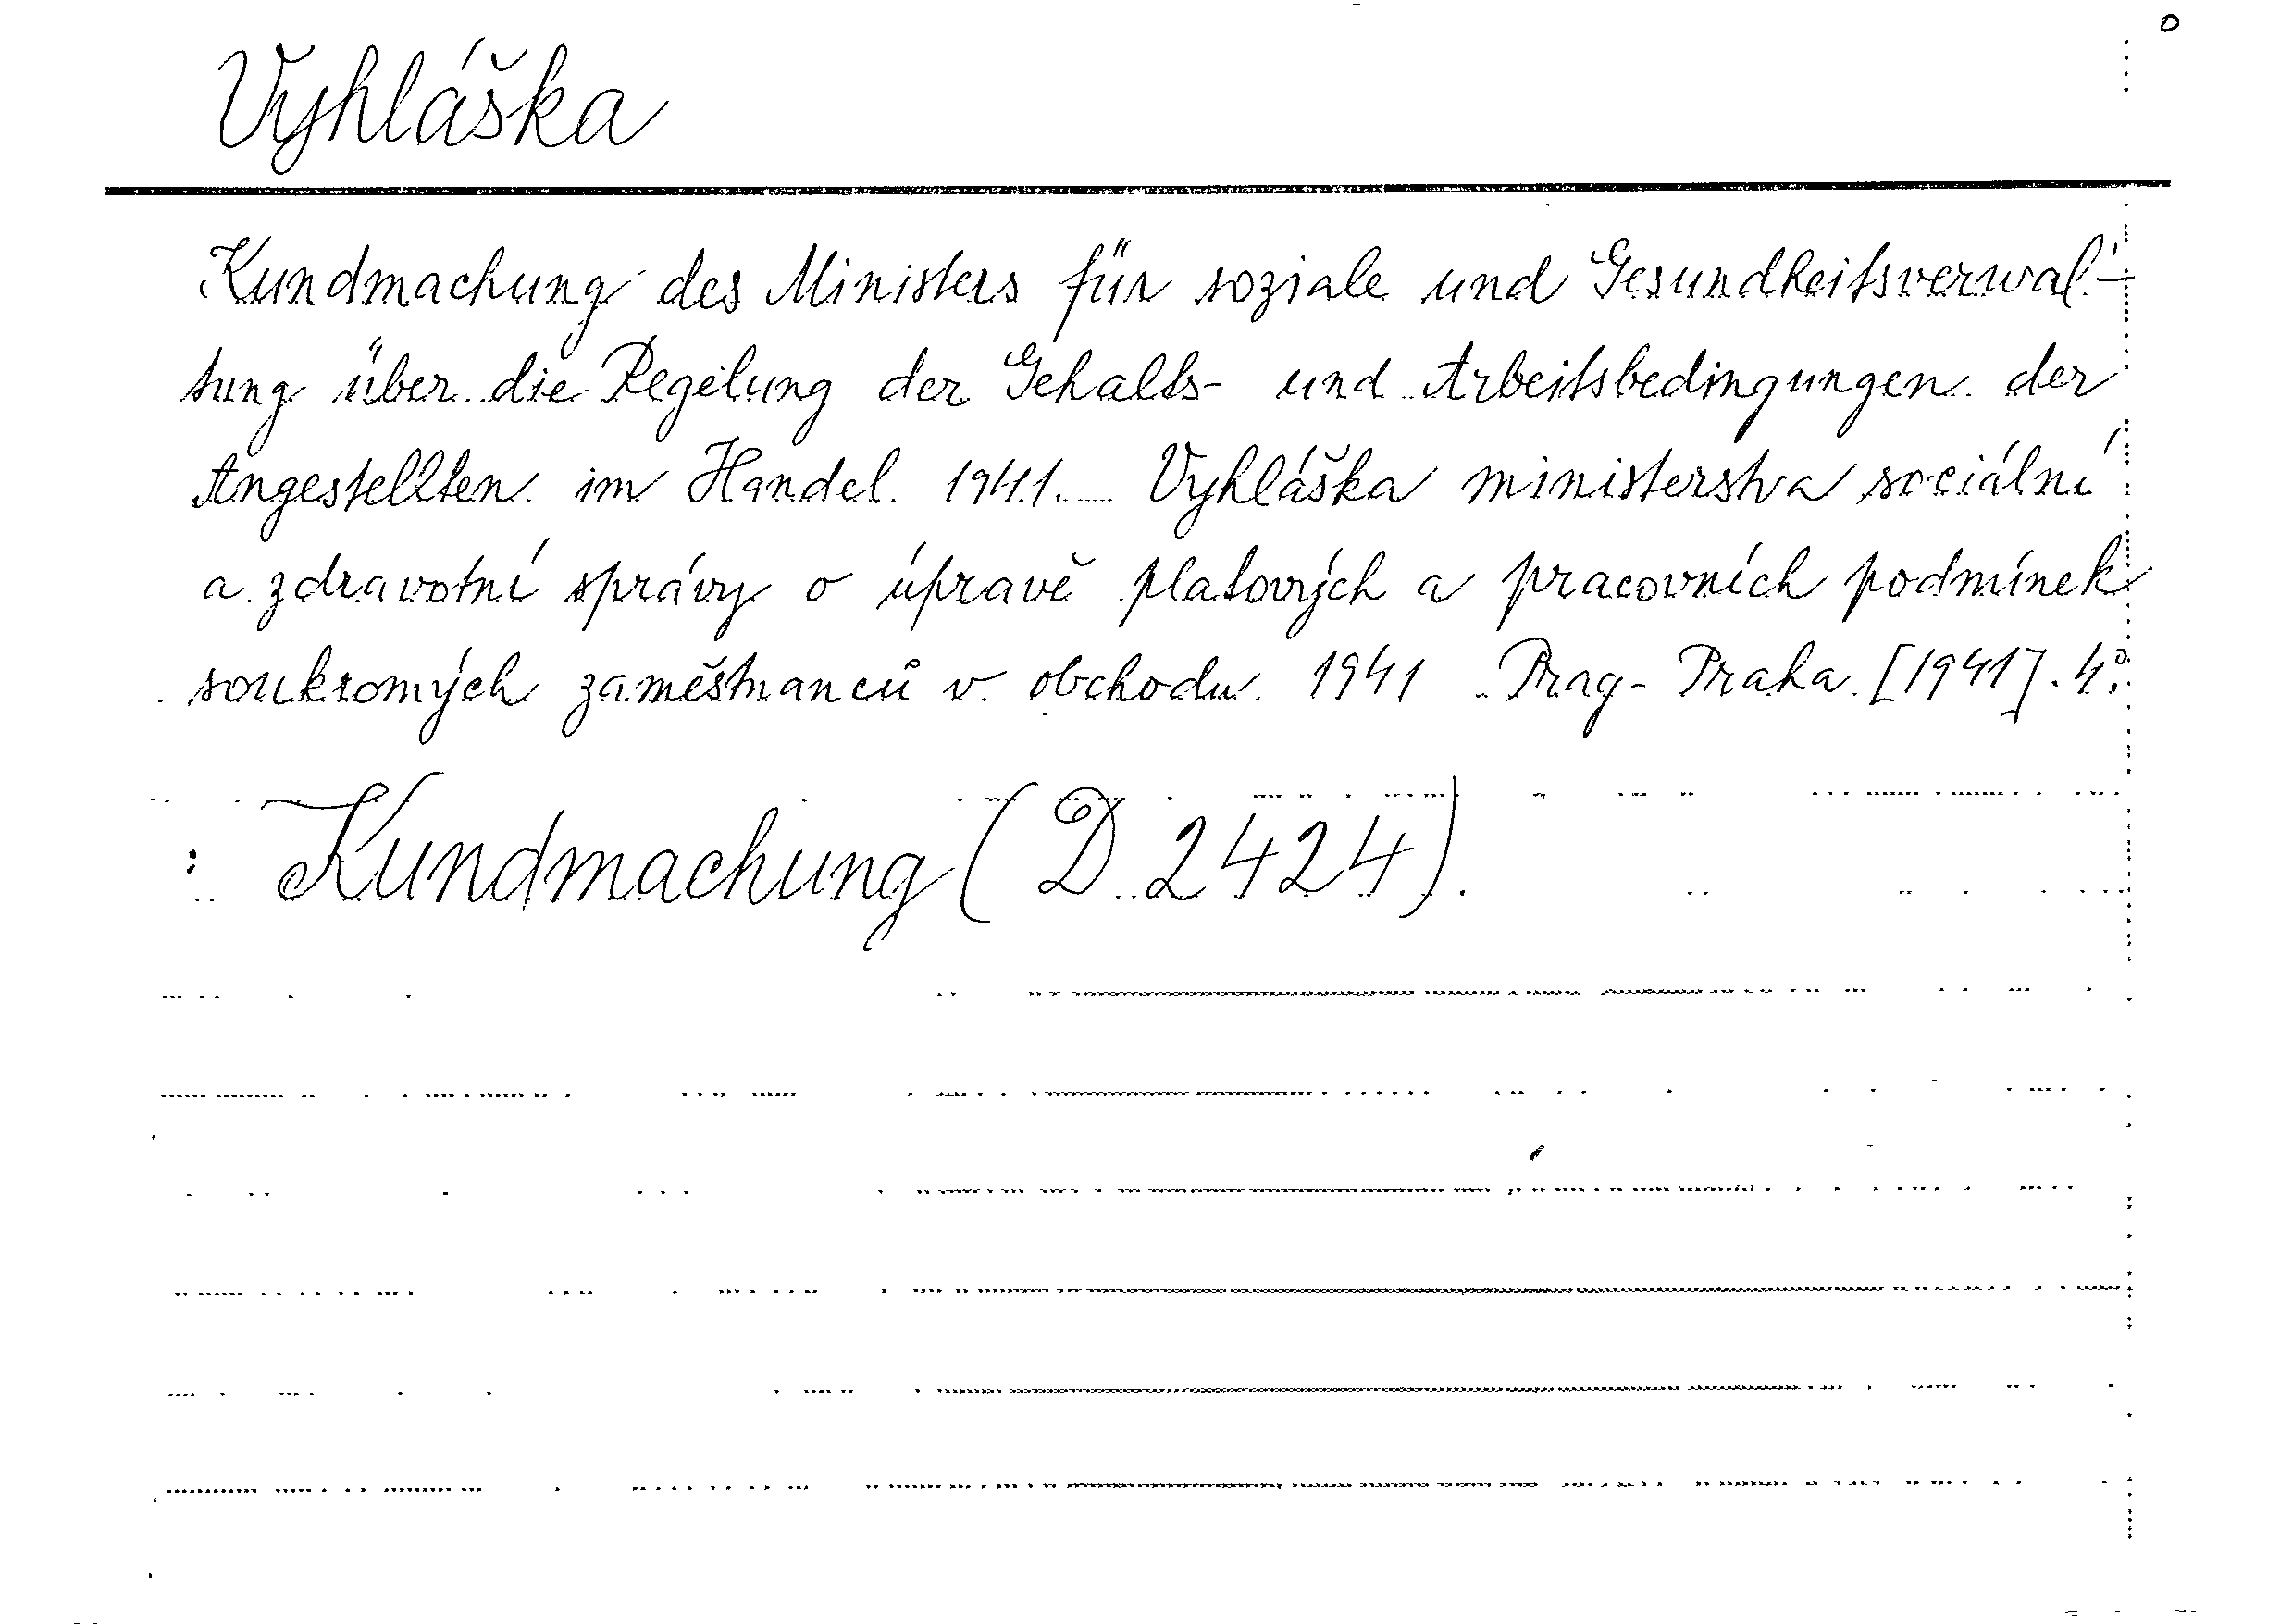 Vyhláška
Kundmachung des Ministers für soziale und Gesundheitsverwal-
tung über die Regelung der Gehalts- und Arbeitsbedingungen der
Angestellten im Handel. 1941. Vyhláška ministerstva sociální
a zdravotní správy o úpravě platových a pracovních podmínek
soukromých zaměstnanců v obchodu. 1941 Prag-Praha. [1941]. 4°.
: Kundmachung (D 2424).